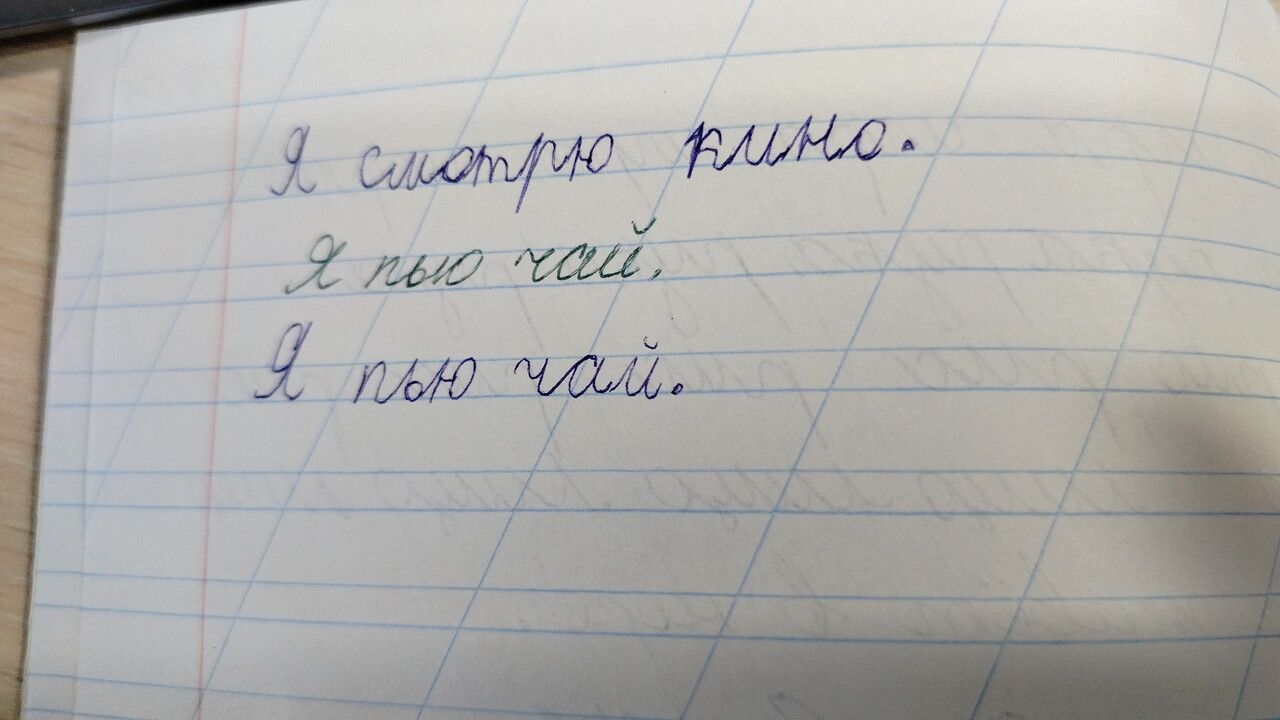 Я смотрю кино.
Я пью чай.
Я пью чай.